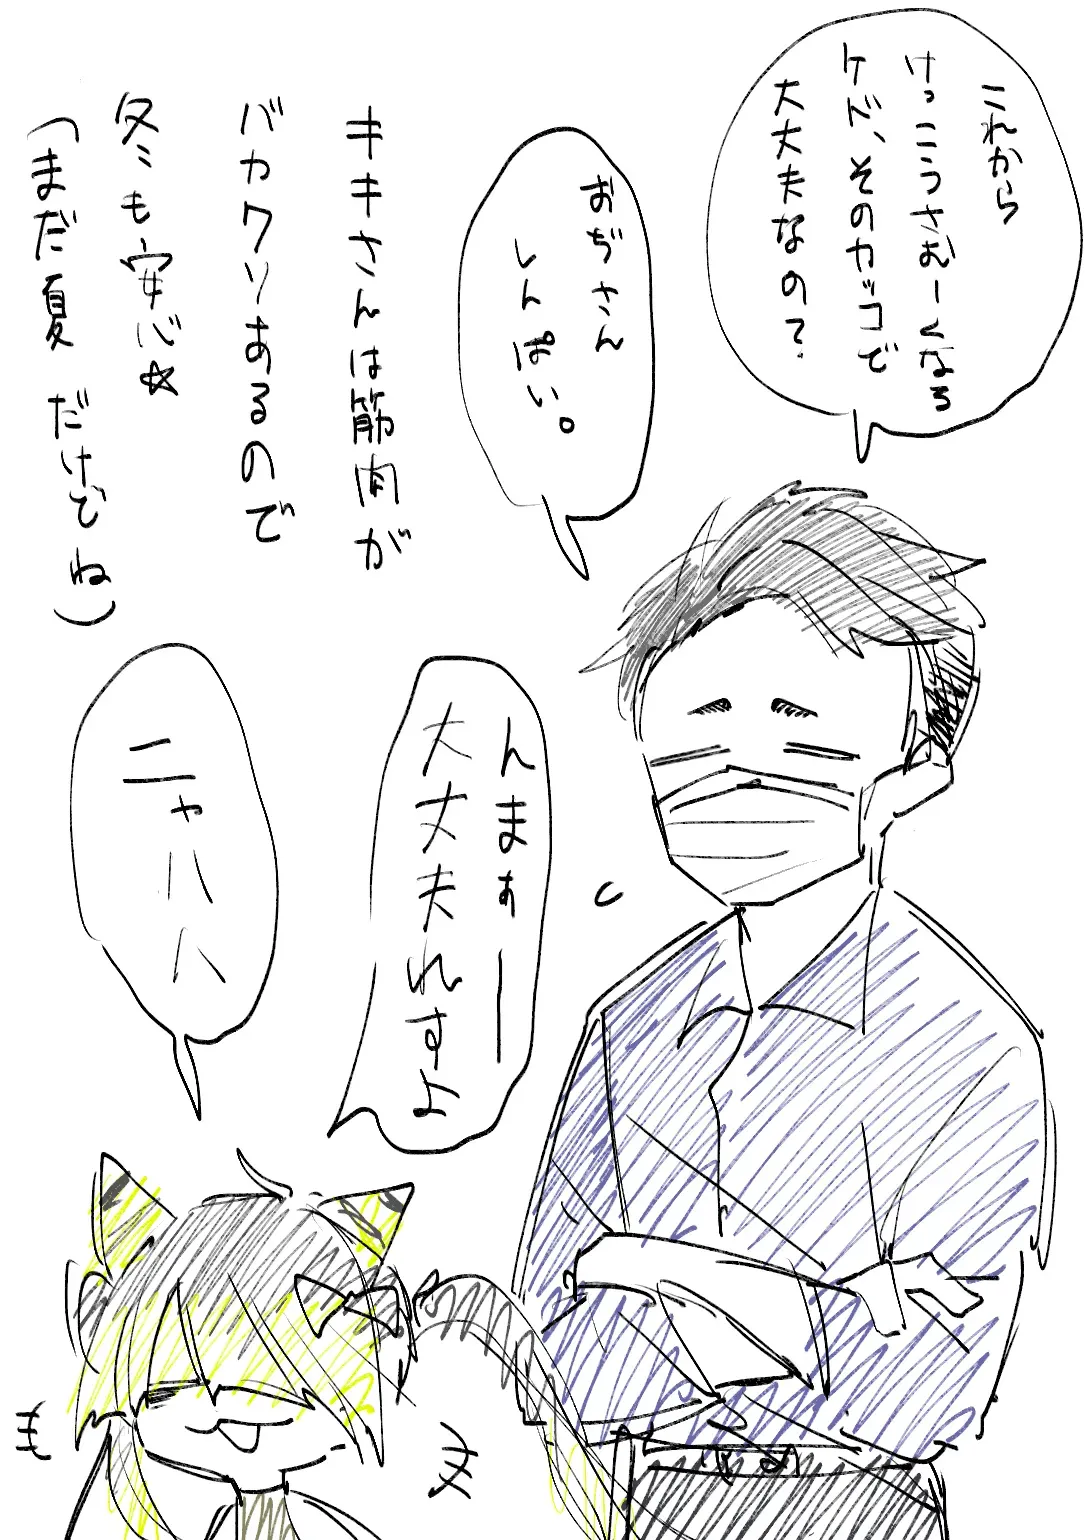 これから
けっこうさむーくなる
ケド、そのカッコで
大丈夫なの？
おぢさん
しんぱい。
キキさんは筋肉が
バカクソあるので
冬も安心☆
(まだ夏だけどね)
んまぁー
大丈夫れすよ
ニャハハ